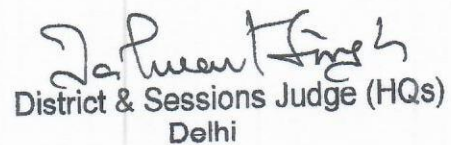 District & Sessions Judge (HQs)
Delhi